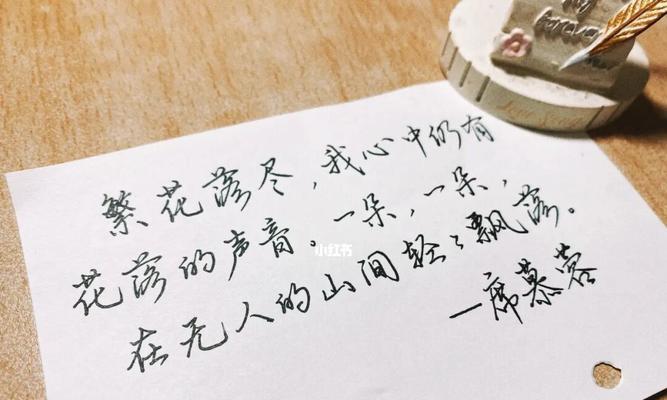 繁花落尽，我心中仍有
花落的声音。一朵，一朵，
在无人的山间轻々飘落。
—席慕蓉
小红书
forever